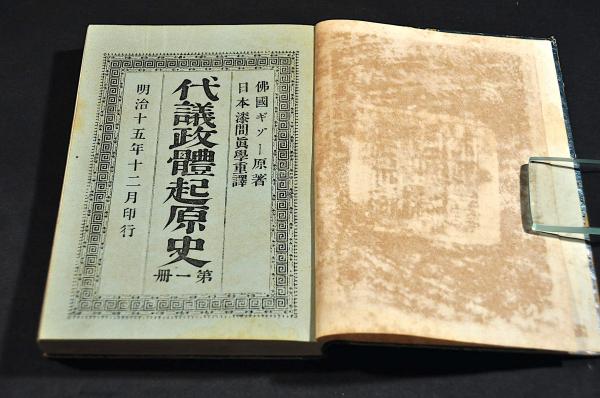 佛國ギゾー原著
日本漆間眞學重譯
代議政體起原史
第一册
明治十五年十二月印行